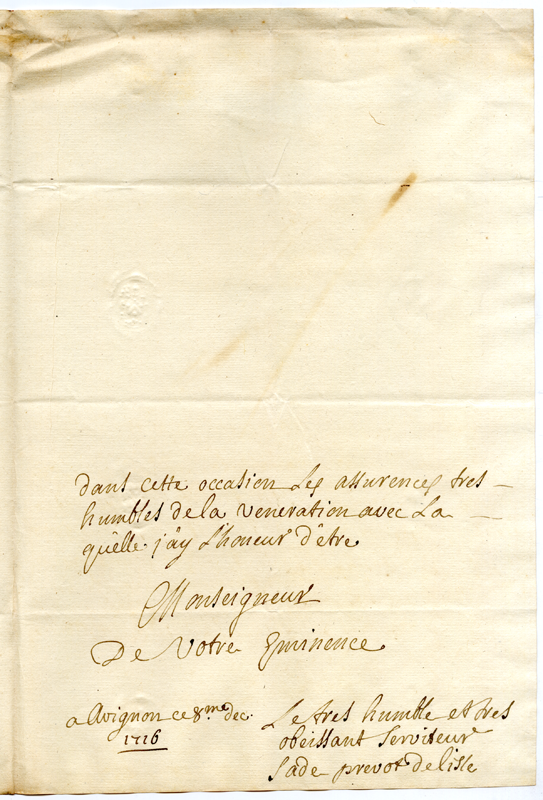 dans cette occasion Les assurences tres
humbles de la veneration avec La
quelle j'ay L'honeur d'être
Monseigneur
De Votre Eminence
a Avignon ce 8.me dec.
1716
Le tres humble et tres
obeissant serviteur
Sade prevot de lisle